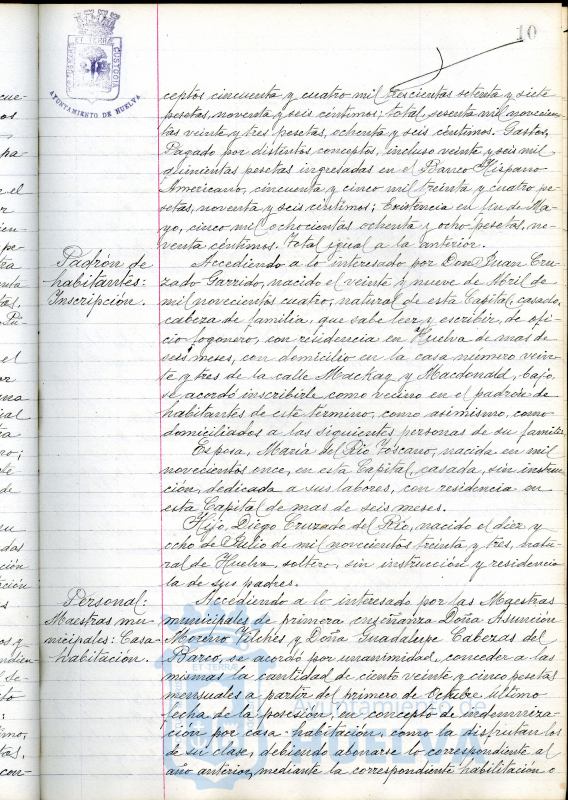 10
PORTUS MARIS ET TERRÆ CUSTODIA
AYUNTAMIENTO DE HUELVA
ceptos cincuenta y cuatro mil trescientas setenta y siete
pesetas, noventa y seis céntimos; total, sesenta mil novecien
tas veinte y tres pesetas, ochenta y seis céntimos. Gastos,
Pagado por distintos conceptos, incluso veinte y seis mil
quinientas pesetas ingresadas en el Banco Hispano
Americano, cincuenta y cinco mil treinta y cuatro pe
setas, noventa y seis céntimos; Existencia en fin de Ma-
yo, cinco mil ochocientas ochenta y ocho pesetas, no-
venta céntimos. Total igual a la anterior.
Padrón de
habitantes:
Inscripción.
Accediendo a lo interesado por Don Juan Cru-
zado Garrido, nacido el veinte y nueve de Abril de
mil novecientos cuatro, natural de esta Capital, casado,
cabeza de familia, que sabe leer y escribir, de ofi
cio fogonero, con residencia en Huelva de mas de
seis meses, con domicilio en la casa número vein-
te y tres de la calle Mackay y Macdonald, bajo,
se acordó inscribirle como vecino en el padrón de
habitantes de este término, como asimismo, como
domiciliados a las siguientes personas de su familia
Esposa, Maria del Rio Toscano, nacida en mil
novecientos once, en esta Capital, casada, sin instruc
ción, dedicada a sus labores, con residencia en
esta Capital de mas de seis meses.
Hijo, Diego Cruzado del Rio, nacido el diez y
ocho de Julio de mil novecientos treinta y tres, natu-
ral de Huelva, soltero, sin instrucción y residencia
la de sus padres.
Personal:
Maestras mu-
nicipales: Casa-
habitación.
Accediendo a lo interesado por las Maestras
municipales de primera enseñanza Doña Asunción
Moreno Vilches y Doña Guadalupe Cabezas del
Barco, se acordó por unanimidad, conceder a las
mismas la cantidad de ciento veinte y cinco pesetas
mensuales a partir del primero de Octubre último
fecha de la posesión, en concepto de indemniza-
ción por casa-habitación, como la disfrutan los
de su clase, debiendo abonarse lo correspondiente al
año anterior, mediante la correspondiente habilitación o
Ayuntamiento de
HUELVA